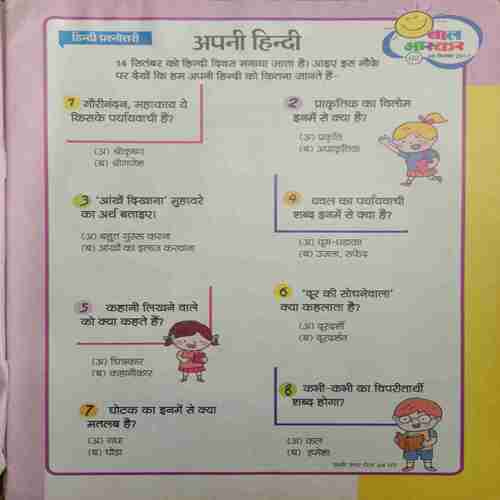 हिन्दी प्रश्नोत्तरी
अपनी हिन्दी
बाल
भास्कर
14 सितंबर को हिन्दी दिवस मनाया जाता है। आइए इस मौके
पर देखें कि हम अपनी हिन्दी को कितना जानते हैं-
1 गौरीनंदन, महाकाय ये
किसके पर्यायवाची हैं?
(अ) श्रीकृष्ण
(ब) श्रीगणेश
2 प्राकृतिक का विलोम
इनमें से क्या है?
(अ) प्रकृति
(ब) अप्राकृतिक
3 'आंखें दिखाना' मुहावरे
का अर्थ बताइए।
(अ) बहुत गुस्सा करना
(ब) आंखों का इलाज करवाना
4 धवल का पर्यायवाची
शब्द इनमें से क्या है?
(अ) धूम-धड़ाका
(ब) उजला, सफेद
5 कहानी लिखने वाले
को क्या कहते हैं?
(अ) चित्रकार
(ब) कहानीकार
6 'दूर की सोचनेवाला'
क्या कहलाता है?
(अ) दूरदर्शी
(ब) दूरदर्शन
7 घोटक का इनमें से क्या
मतलब है?
(अ) गधा
(ब) घोड़ा
8 कभी-कभी का विपरीतार्थी
शब्द होगा?
(अ) कल
(ब) हमेशा